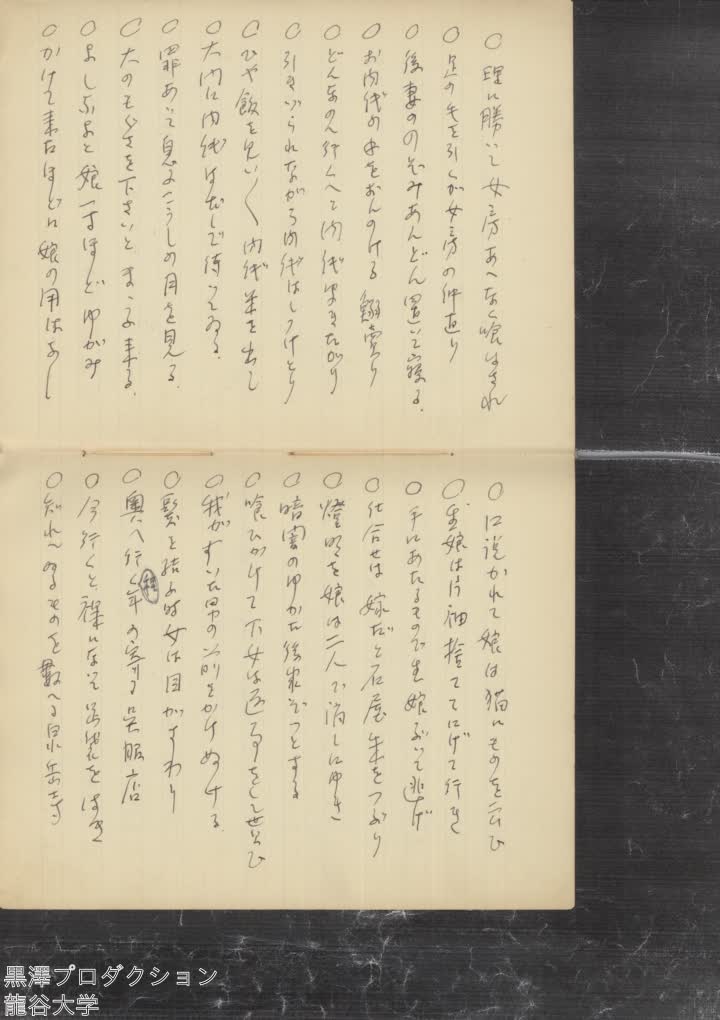 ○ 理に勝って女房あへなく喰はされ
○ 足の毛を引くが女房の仲直り
○ 後妻ののぞみあんどん置いて寝る
○ お内儀の
○ どんなのん行くへと内儀
○ 引きづられながら内儀はしつけとり
○ ひや飯を見い〳〵内儀米を出し
○ 大門に内儀はむしで待ってゐる
○ 罪あって息子こうしの月を見る
○ 大のもぐさを下さいとまゝ子来る
○ よしなよと娘一寸ほどゆがみ
○ かけて来たほどに娘の用はなし
○ 口説かれて娘は猫にものを云ひ
○ 生娘は片袖捨ててにげて行き
○ 手にあたるもので生娘ぶって逃げ
○ 仕合せは嫁だと石屋朱をつぶり
○ 燈明を娘は二人で消しにゆき
○ 暗闇のゆかた後家ぞっとする
○ 喰ひかけて下女は返事をして笑ひ
○ 我がすいた男の前をかけぬける
○ 髪を結ふ時女は目がすわり
○ 奥へ行く程年の寄る呉服店
○ 今行くと裸になって足袋をはき
○ 知れてゐるものを数へる泉岳寺
黒澤プロダクション
龍谷大学